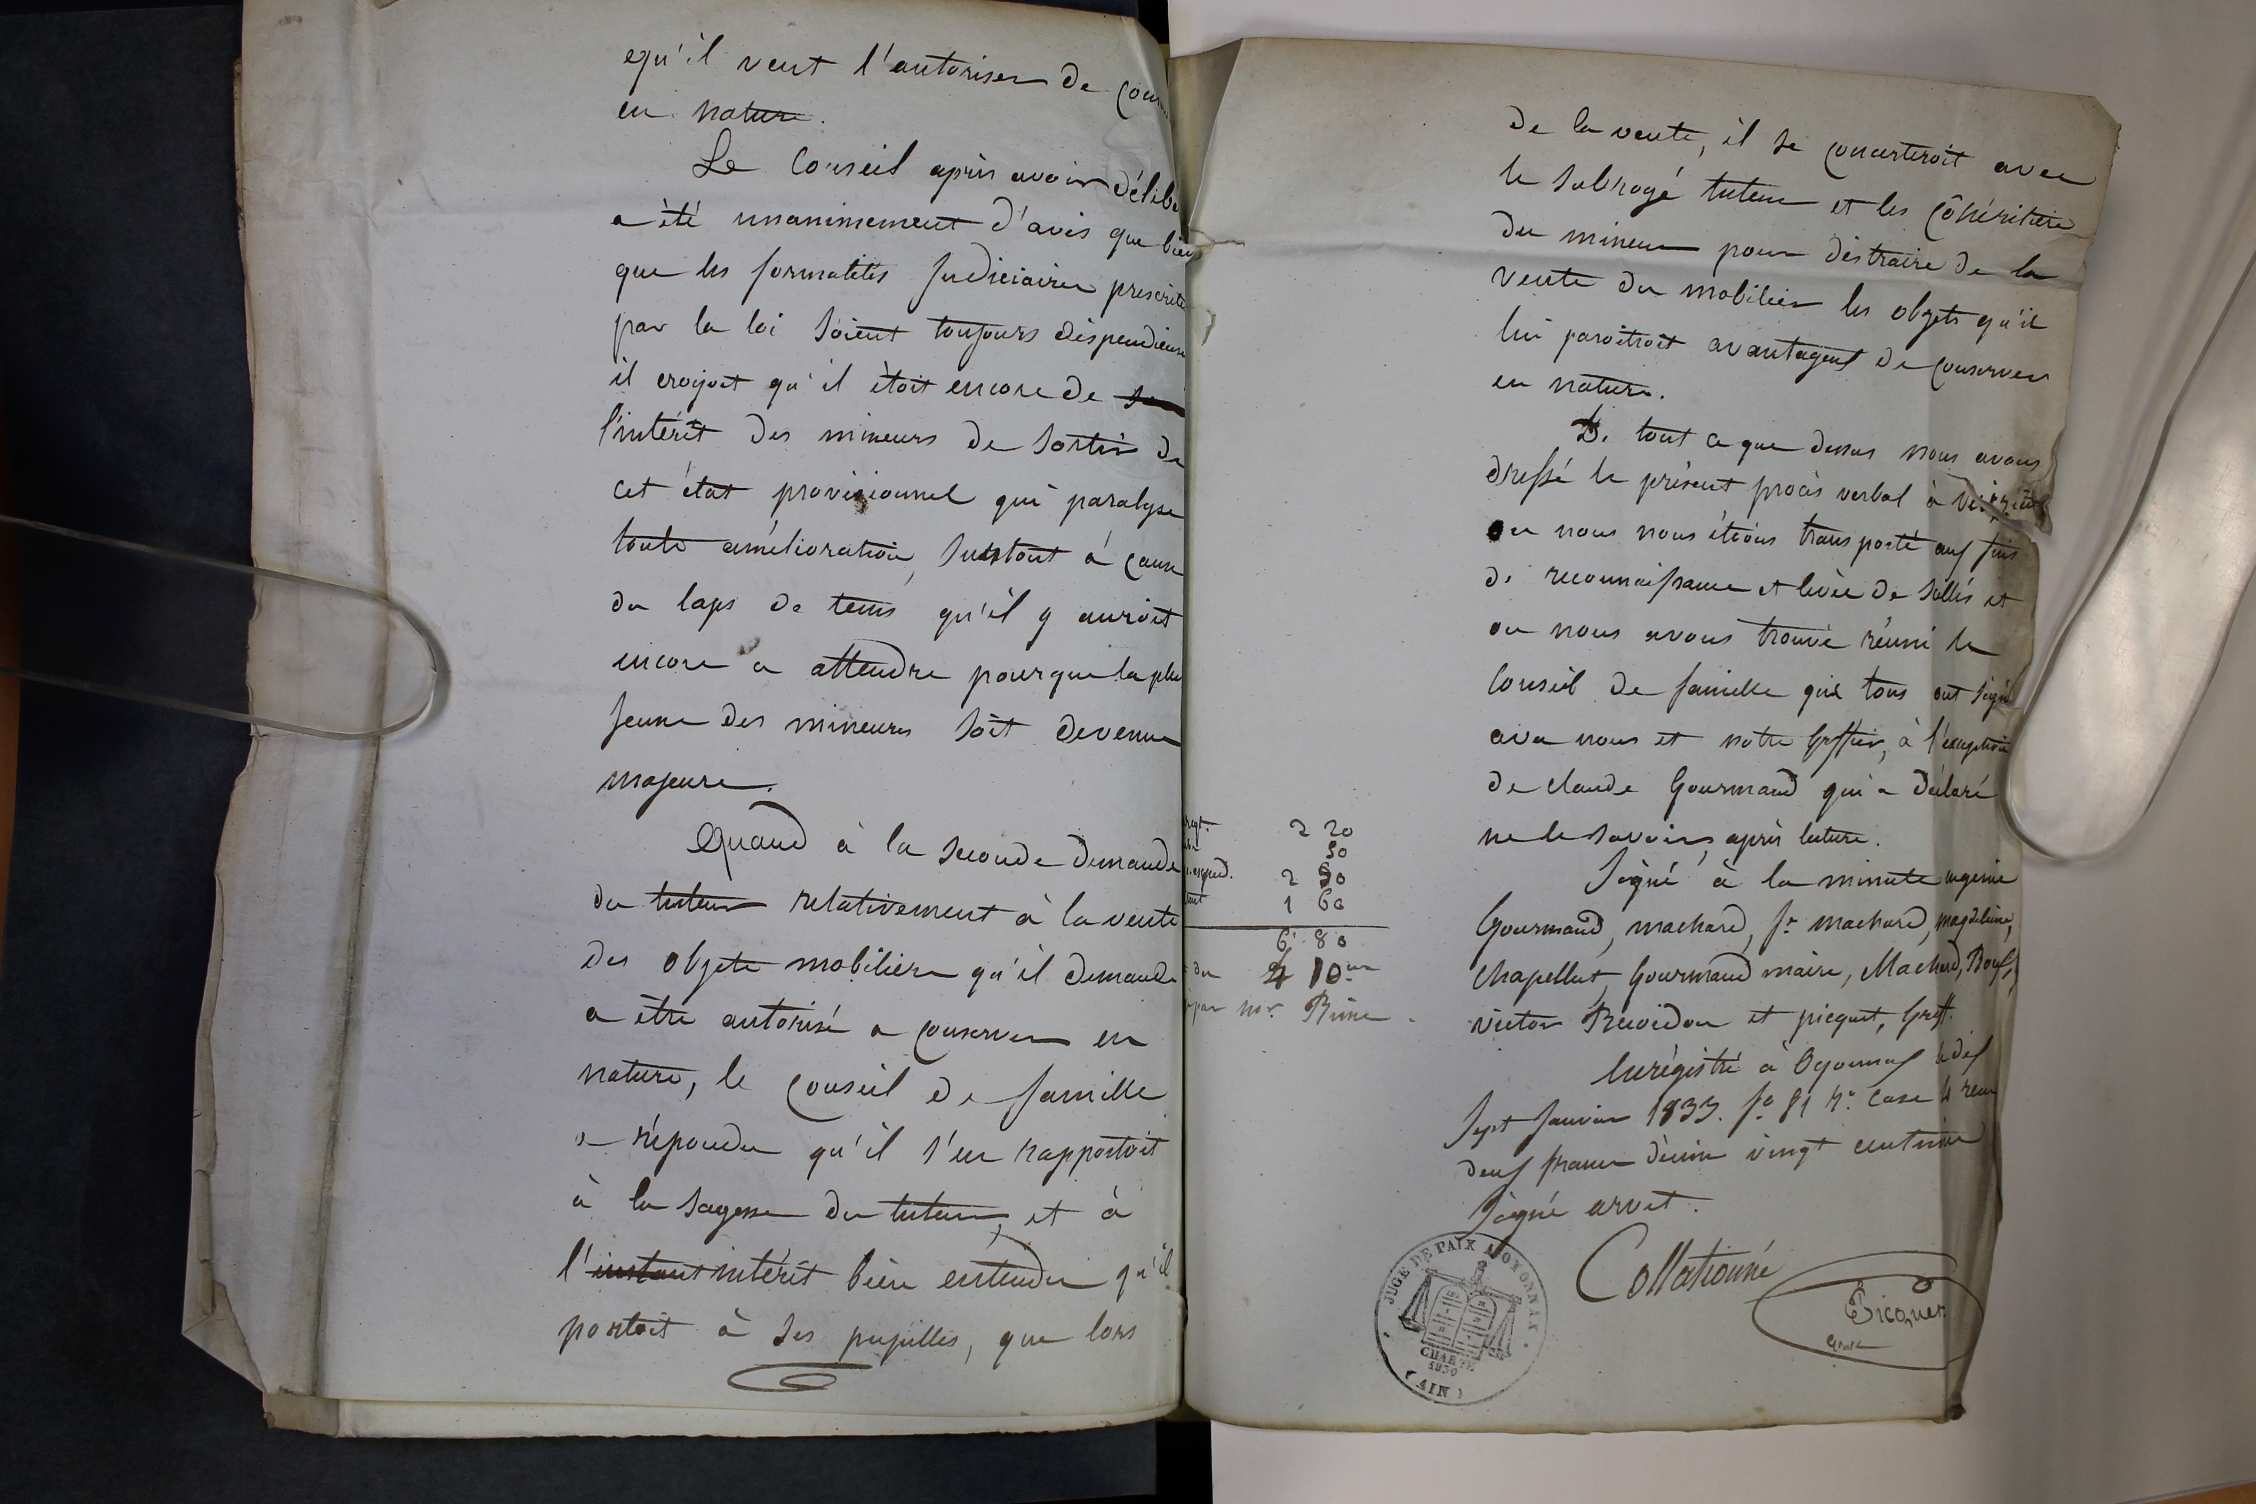 qu'il veut l'autoriser de
en nature.
Le Conseil après avoir délibé
a été unanimement d'avis que bien
que les formalités judiciaires prescrite
par la loi soient toujours dispendieuse
il croyoit qu'il étoit encore de
l'intérêt des mineurs de sortir de
cet état provisionnel qui paralyse
toute amélioration, surtout à cause
du laps de tems qu'il y auroit
encore a attendre pourque la plus
jeune des mineures soit devenue
majeure.
Quand à la seconde demande
du tuteur relativement à la vente
des objets mobiliers qu'il demande
a être autorisé a conserver en
nature, le conseil de famille
a répondu qu'il s'en rapportoit
à la sagesse du tuteur, et à
l'instant intérêt bien entendu qu'il
portoit à ses pupilles, que lors
de la vente, il se concerteroit avec
le subrogé tuteur et les côhéritiers
du mineur pour distraire de la
vente du mobilier les objets qu'il
lui paroîtroit avantageux de conserver
en nature.
De tout ce que dessus nous avons
dressé le présent procès verbal à
ou nous nous étions transporté aux fins
de reconnaissance et levée de sellés et
ou nous avons trouvé réuni le
Conseil de famille qui tous ont signé
avec nous et notre Greffier, à l'exception
de Claude Gourmand qui a déclaré
ne le savoir, après lecture.
Signé à la minute
Gourmand, machard, jr. machard, magdeleine,
Chapellut, Gourmand maire, Machard,
victor et picquet, Greff.
Enrégistré à Oyonnax le dix
Sept Janvier 1833. fo 81 Ro. Case 4 reçu
deux francs décime vingt centimes
Signé arvet.
Collationné
Picquet
2 20
50
2 50
1 60
6 80
du 4 10
par mr.
JUGE DE PAIX D'OYONNAX
CHARTE
1830
(AIN)